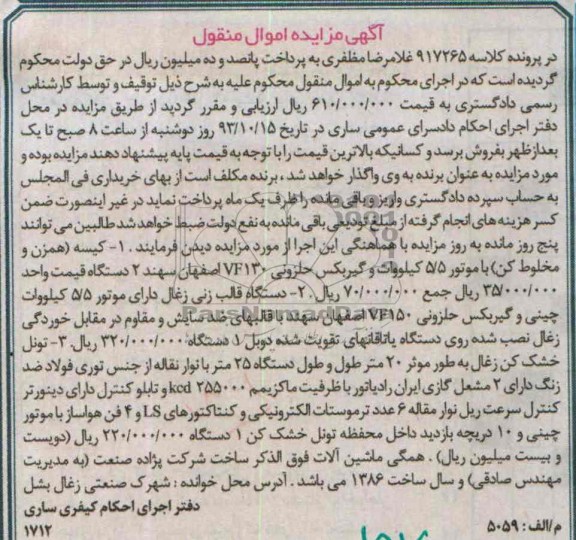 آگهی مزایده اموال منقول
در پرونده کلاسه ۹۱۷۲۶۵ غلامرضا مظفری به پرداخت پانصد و ده میلیون ریال در حق دولت محکوم
گردیده است که در اجرای محکوم به اموال منقول محکوم علیه به شرح ذیل توقیف و توسط کارشناس
رسمی دادگستری به قیمت ۶۱۰/۰۰۰/۰۰۰ ریال ارزیابی و مقرر گردید از طریق مزایده در محل
دفتر اجرای احکام دادسرای عمومی ساری در تاریخ ۹۳/۱۰/۱۵ روز دوشنبه از ساعت ۸ صبح تا یک
بعدازظهر بفروش برسد و کسانیکه بالاترین قیمت را با توجه به قیمت پایه پیشنهاد دهند مزایده بوده و
مورد مزایده به عنوان برنده به وی واگذار خواهد شد ، برنده مکلف است از بهای خریداری فی المجلس
به حساب سپرده دادگستری واریز و باقی مانده را ظرف یک ماه پرداخت نماید در غیر اینصورت ضمن
کسر هزینه های انجام گرفته از مبلغ تودیعی باقی مانده به نفع دولت ضبط خواهد شد طالبین می توانند
پنج روز مانده به روز مزایده با هماهنگی این اجرا از مورد مزایده دیدن فرمایند . ۱- کیسه (همزن و
مخلوط کن) با موتور ۵/۵ کیلووات و گیربکس حلزونی VF۱۳۰ اصفهان سهند ۲ دستگاه قیمت واحد
۳۵/۰۰۰/۰۰۰ ریال جمع ۷۰/۰۰۰/۰۰۰ ریال .۲- دستگاه قالب زنی زغال دارای موتور ۵/۵ کیلووات
چینی و گیربکس حلزونی VF۱۵۰ اصفهان سهند با قالبهای ضد سایش و مقاوم در مقابل خوردگی
زغال نصب شده روی دستگاه یاتاقانهای تقویت شده دوبل ۱ دستگاه ۳۲۰/۰۰۰/۰۰۰ ریال. ۳- تونل
خشک کن زغال به طور موثر ۲۰ متر طول و طول دستگاه ۲۵ متر با نوار نقاله از جنس توری فولاد ضد
زنگ دارای ۲ مشعل گازی ایران رادیاتور با ظرفیت ماکزیمم ۲۵۵۰۰۰ kcd و تابلو کنترل دارای دینورتر
کنترل سرعت ریل نوار مقاله ۶ عدد ترموستات الکترونیکی و کنتاکتورهای LS و ۴ فن هواساز با موتور
چینی و ۱۰ دریچه بازدید داخل محفظه تونل خشک کن ۱ دستگاه ۲۲۰/۰۰۰/۰۰۰ ریال (دویست
و بیست میلیون ریال) . همگی ماشین آلات فوق الذکر ساخت شرکت پژاده صنعت (به مدیریت
مهندس صادقی) و سال ساخت ۱۳۸۶ می باشد . آدرس محل خوانده : شهرک صنعتی زغال بشل
دفتر اجرای احکام کیفری ساری
م/الف : ۵۰۵۹
۱۷۱۲